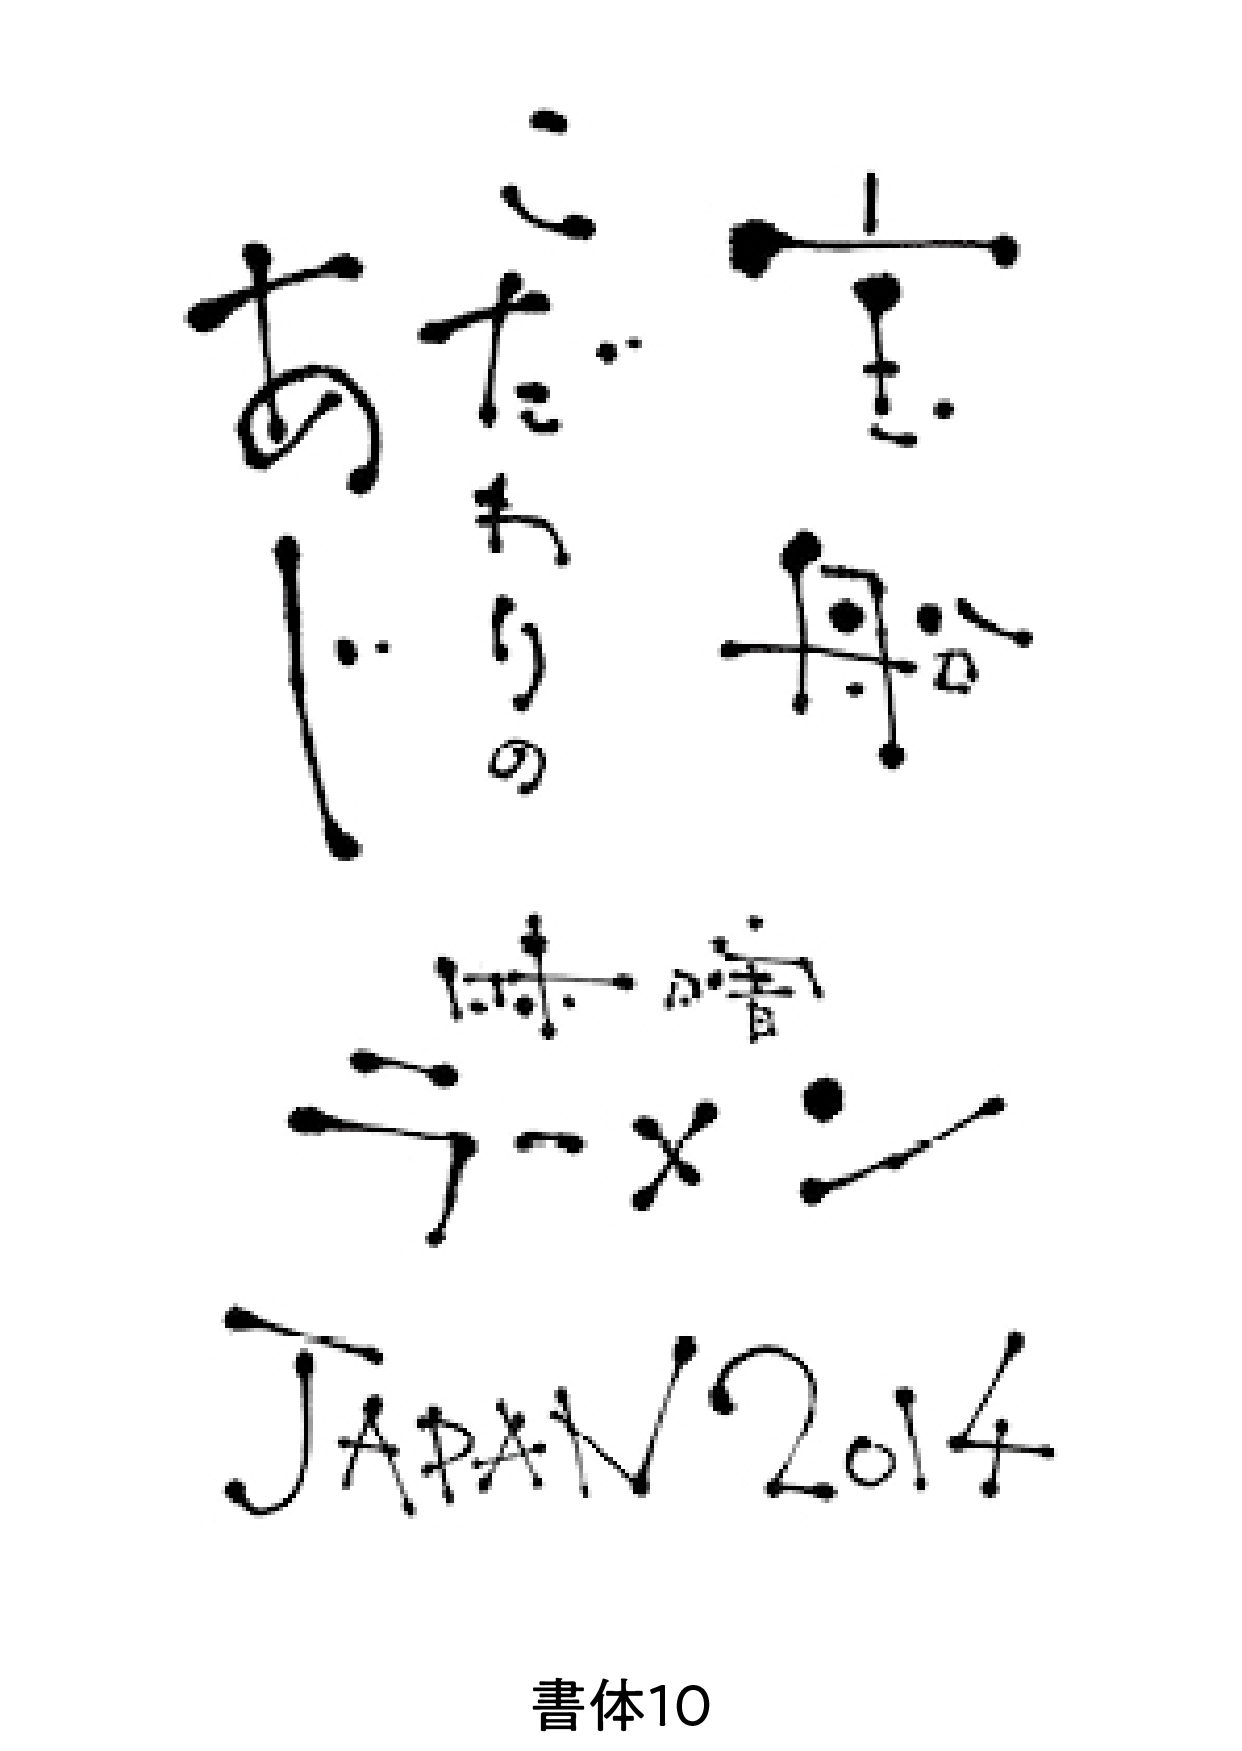 こだわりの
あじ
ラーメン
JAPAN 2014
書体10